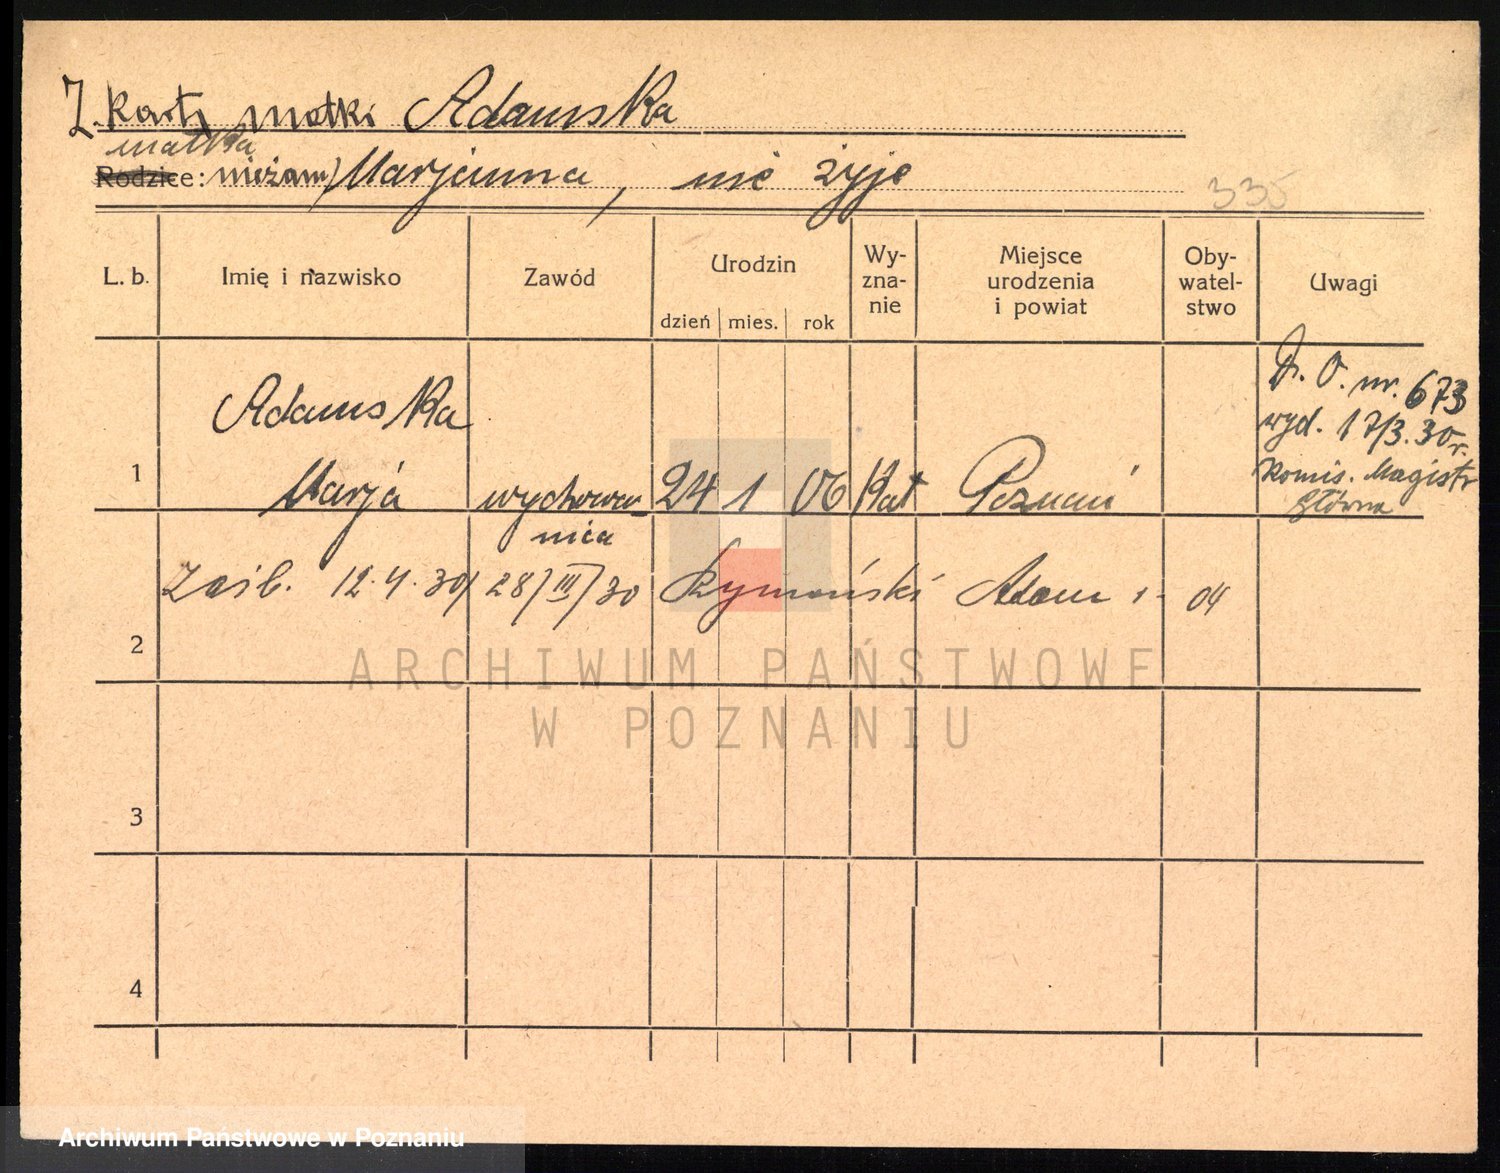 Z. karty matki Adamska
matka
Rodzice: niezam) Marjanna, nie żyje
335
L. b. Imię i nazwisko Zawód Urodzin Wy-zna-nie Miejsce urodzenia i powiat Oby-watel-stwo Uwagi
dzień mies. rok
D. O. nr. 673
wyd. 17/3. 30 r.
Komis. Magistr
Główna
Adamska
1 Marja wychowa- 24 1 06 Kat Poznań
nica
Zaśl. 12. 4. 30) 28/III/30 Rymański Adam 1- 04
2
ARCHIWUM PAŃSTWOWE
W POZNANIU
3
4
Archiwum Państwowe w Poznaniu